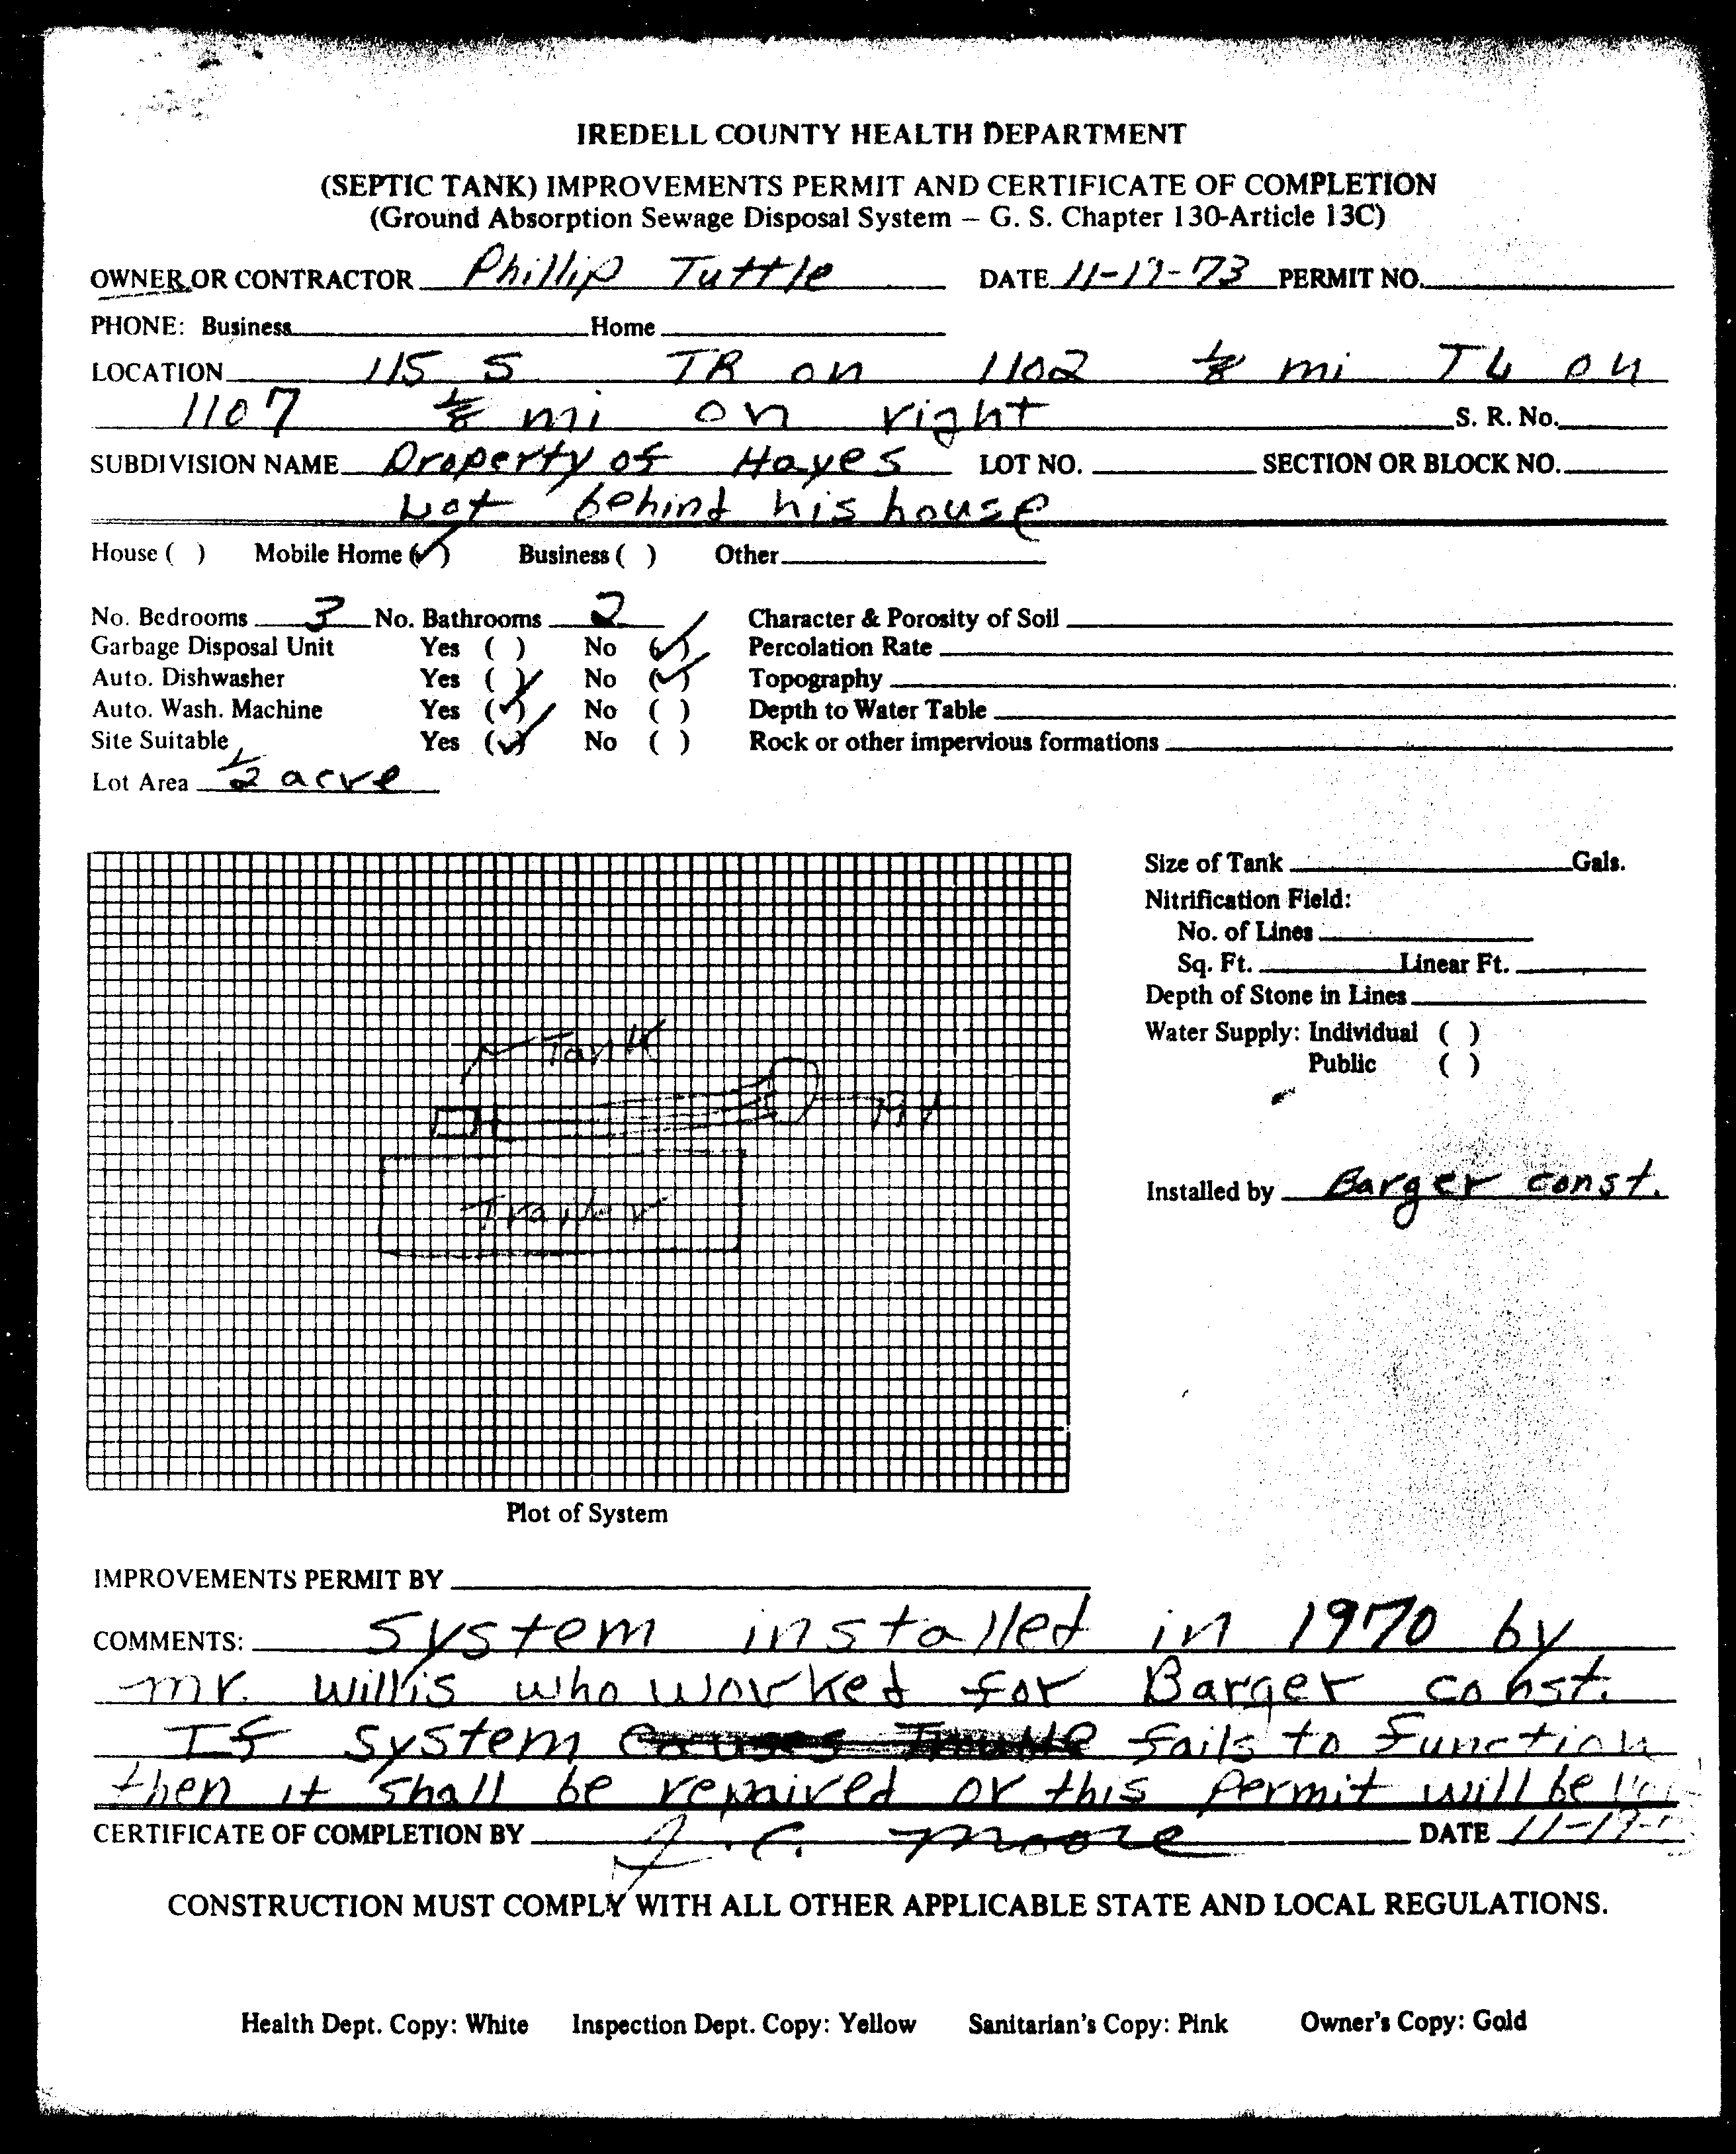 IREDELL COUNTY HEALTH DEPARTMENT
(SEPTIC TANK) IMPROVEMENTS PERMIT AND CERTIFICATE OF COMPLETION
(Ground Absorption Sewage Disposal System – G. S. Chapter 130-Article 13C)
OWNER OR CONTRACTOR Phillip Tuttle DATE 11-19-73 PERMIT NO.
PHONE: Business Home
LOCATION 115 S TR on 1102 1/8 mi TL on
1107 1/8 mi on right S. R. No.
SUBDIVISION NAME Property of Hayes LOT NO. SECTION OR BLOCK NO.
Lot behind his house
House ( ) Mobile Home (✓) Business ( ) Other
No. Bedrooms 3 No. Bathrooms 2 Character & Porosity of Soil
Garbage Disposal Unit Yes ( ) No (✓) Percolation Rate
Auto. Dishwasher Yes ( ) No (✓) Topography
Auto. Wash. Machine Yes (✓) No ( ) Depth to Water Table
Site Suitable Yes (✓) No ( ) Rock or other impervious formations
Lot Area 1/2 acre
Size of Tank Gals.
Nitrification Field:
No. of Lines
Sq. Ft. Linear Ft.
Depth of Stone in Lines
Water Supply: Individual ( )
Public ( )
Tank
Trailer
Installed by Barger const.
Plot of System
IMPROVEMENTS PERMIT BY
COMMENTS: System installed in 1970 by
mr. willis who worked for Barger const.
If system causes Trouble fails to function
then it shall be repaired or this permit will be
CERTIFICATE OF COMPLETION BY J. C. Moore DATE 11-19-
CONSTRUCTION MUST COMPLY WITH ALL OTHER APPLICABLE STATE AND LOCAL REGULATIONS.
Health Dept. Copy: White Inspection Dept. Copy: Yellow Sanitarian's Copy: Pink Owner's Copy: Gold